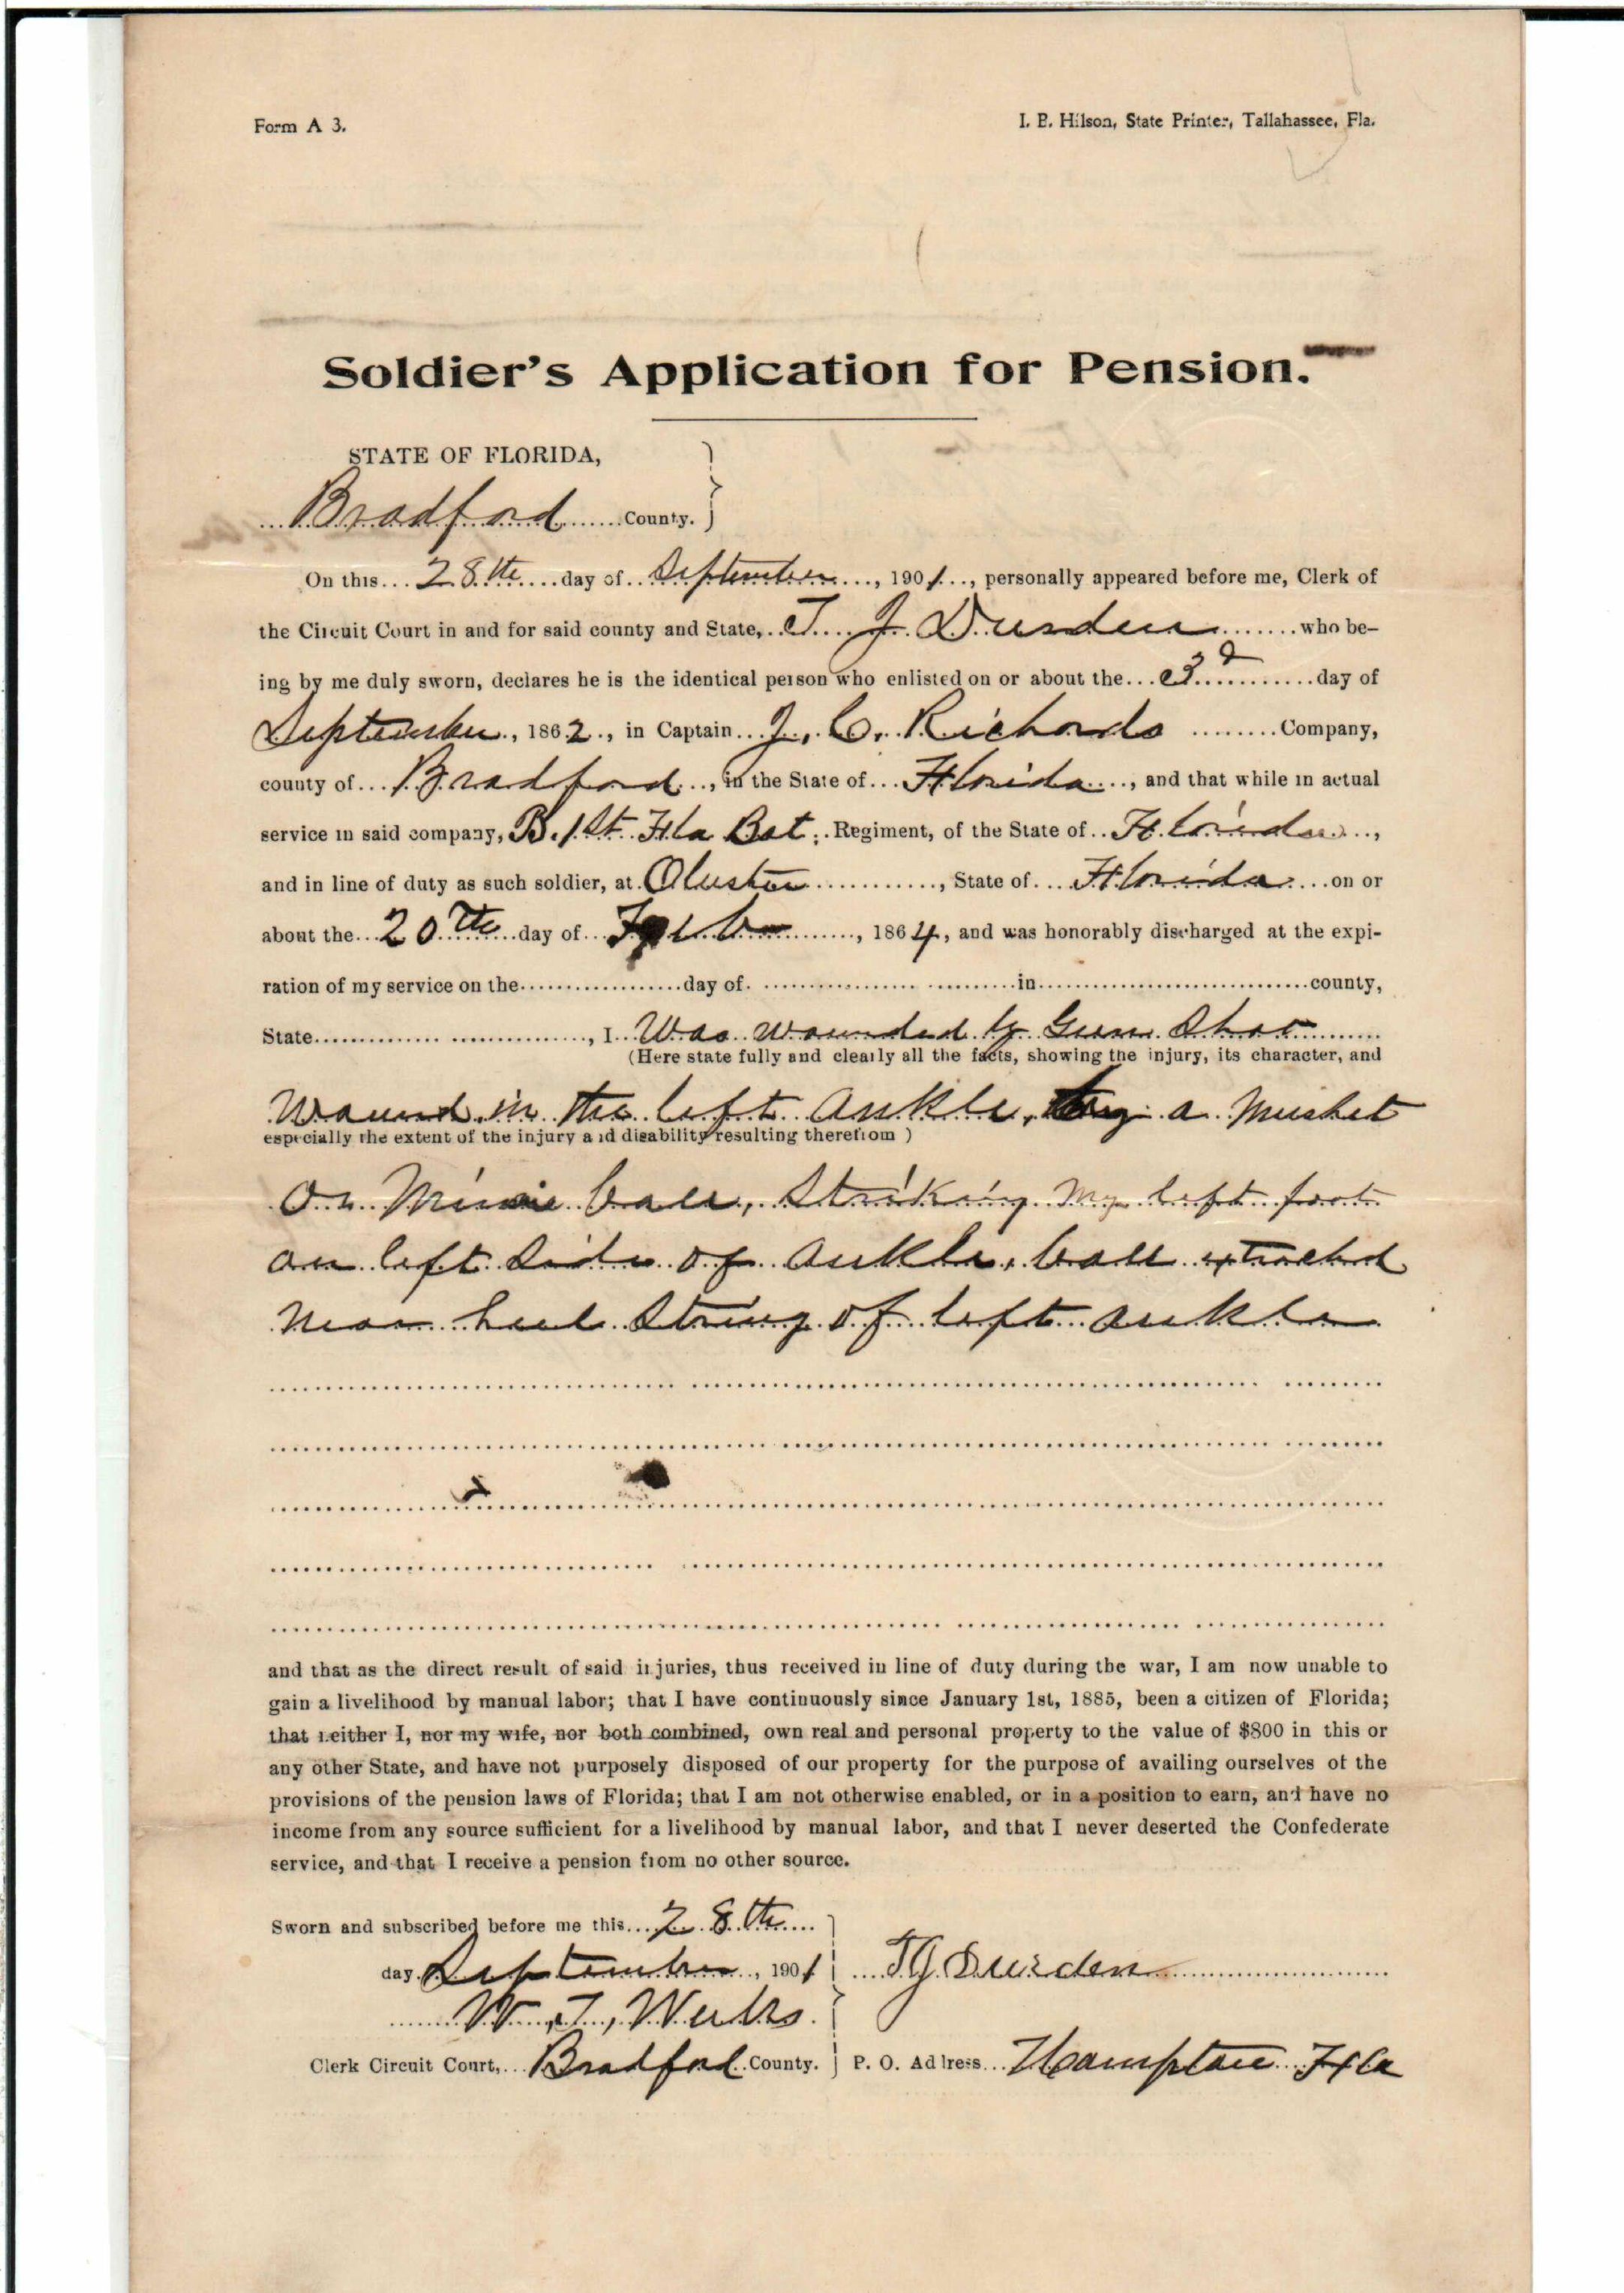 Form A 3.
I. B. Hilson, State Printer, Tallahassee, Fla.
Soldier's Application for Pension.
STATE OF FLORIDA,
Bradford County.
On this 28th day of September, 1901, personally appeared before me, Clerk of
the Circuit Court in and for said county and State, T. J. Durden who be-
ing by me duly sworn, declares he is the identical person who enlisted on or about the 3d day of
September, 1862, in Captain J. C. Richards Company,
county of Bradford, in the State of Florida, and that while in actual
service in said company, B. 1st Fla Bat. Regiment, of the State of Florida,
and in line of duty as such soldier, at Olustee, State of Florida on or
about the 20th day of Feb, 1864, and was honorably discharged at the expi-
ration of my service on the day of in county,
State , I Was wounded by Gun Shot
(Here state fully and clearly all the facts, showing the injury, its character, and
Wound in the left Ankle, by a Musket
especially the extent of the injury and disability resulting therefrom )
Or Minie ball, Striking My left foot
on left Side of Ankle, ball extracted
near heel String of left ankle
and that as the direct result of said injuries, thus received in line of duty during the war, I am now unable to
gain a livelihood by manual labor; that I have continuously since January 1st, 1885, been a citizen of Florida;
that neither I, nor my wife, nor both combined, own real and personal property to the value of $800 in this or
any other State, and have not purposely disposed of our property for the purpose of availing ourselves of the
provisions of the pension laws of Florida; that I am not otherwise enabled, or in a position to earn, and have no
income from any source sufficient for a livelihood by manual labor, and that I never deserted the Confederate
service, and that I receive a pension from no other source.
Sworn and subscribed before me this 28th
day September, 1901
T J Durden
W. T, Weeks.
Clerk Circuit Court, Bradford County.
P. O. Address Hampton Fla